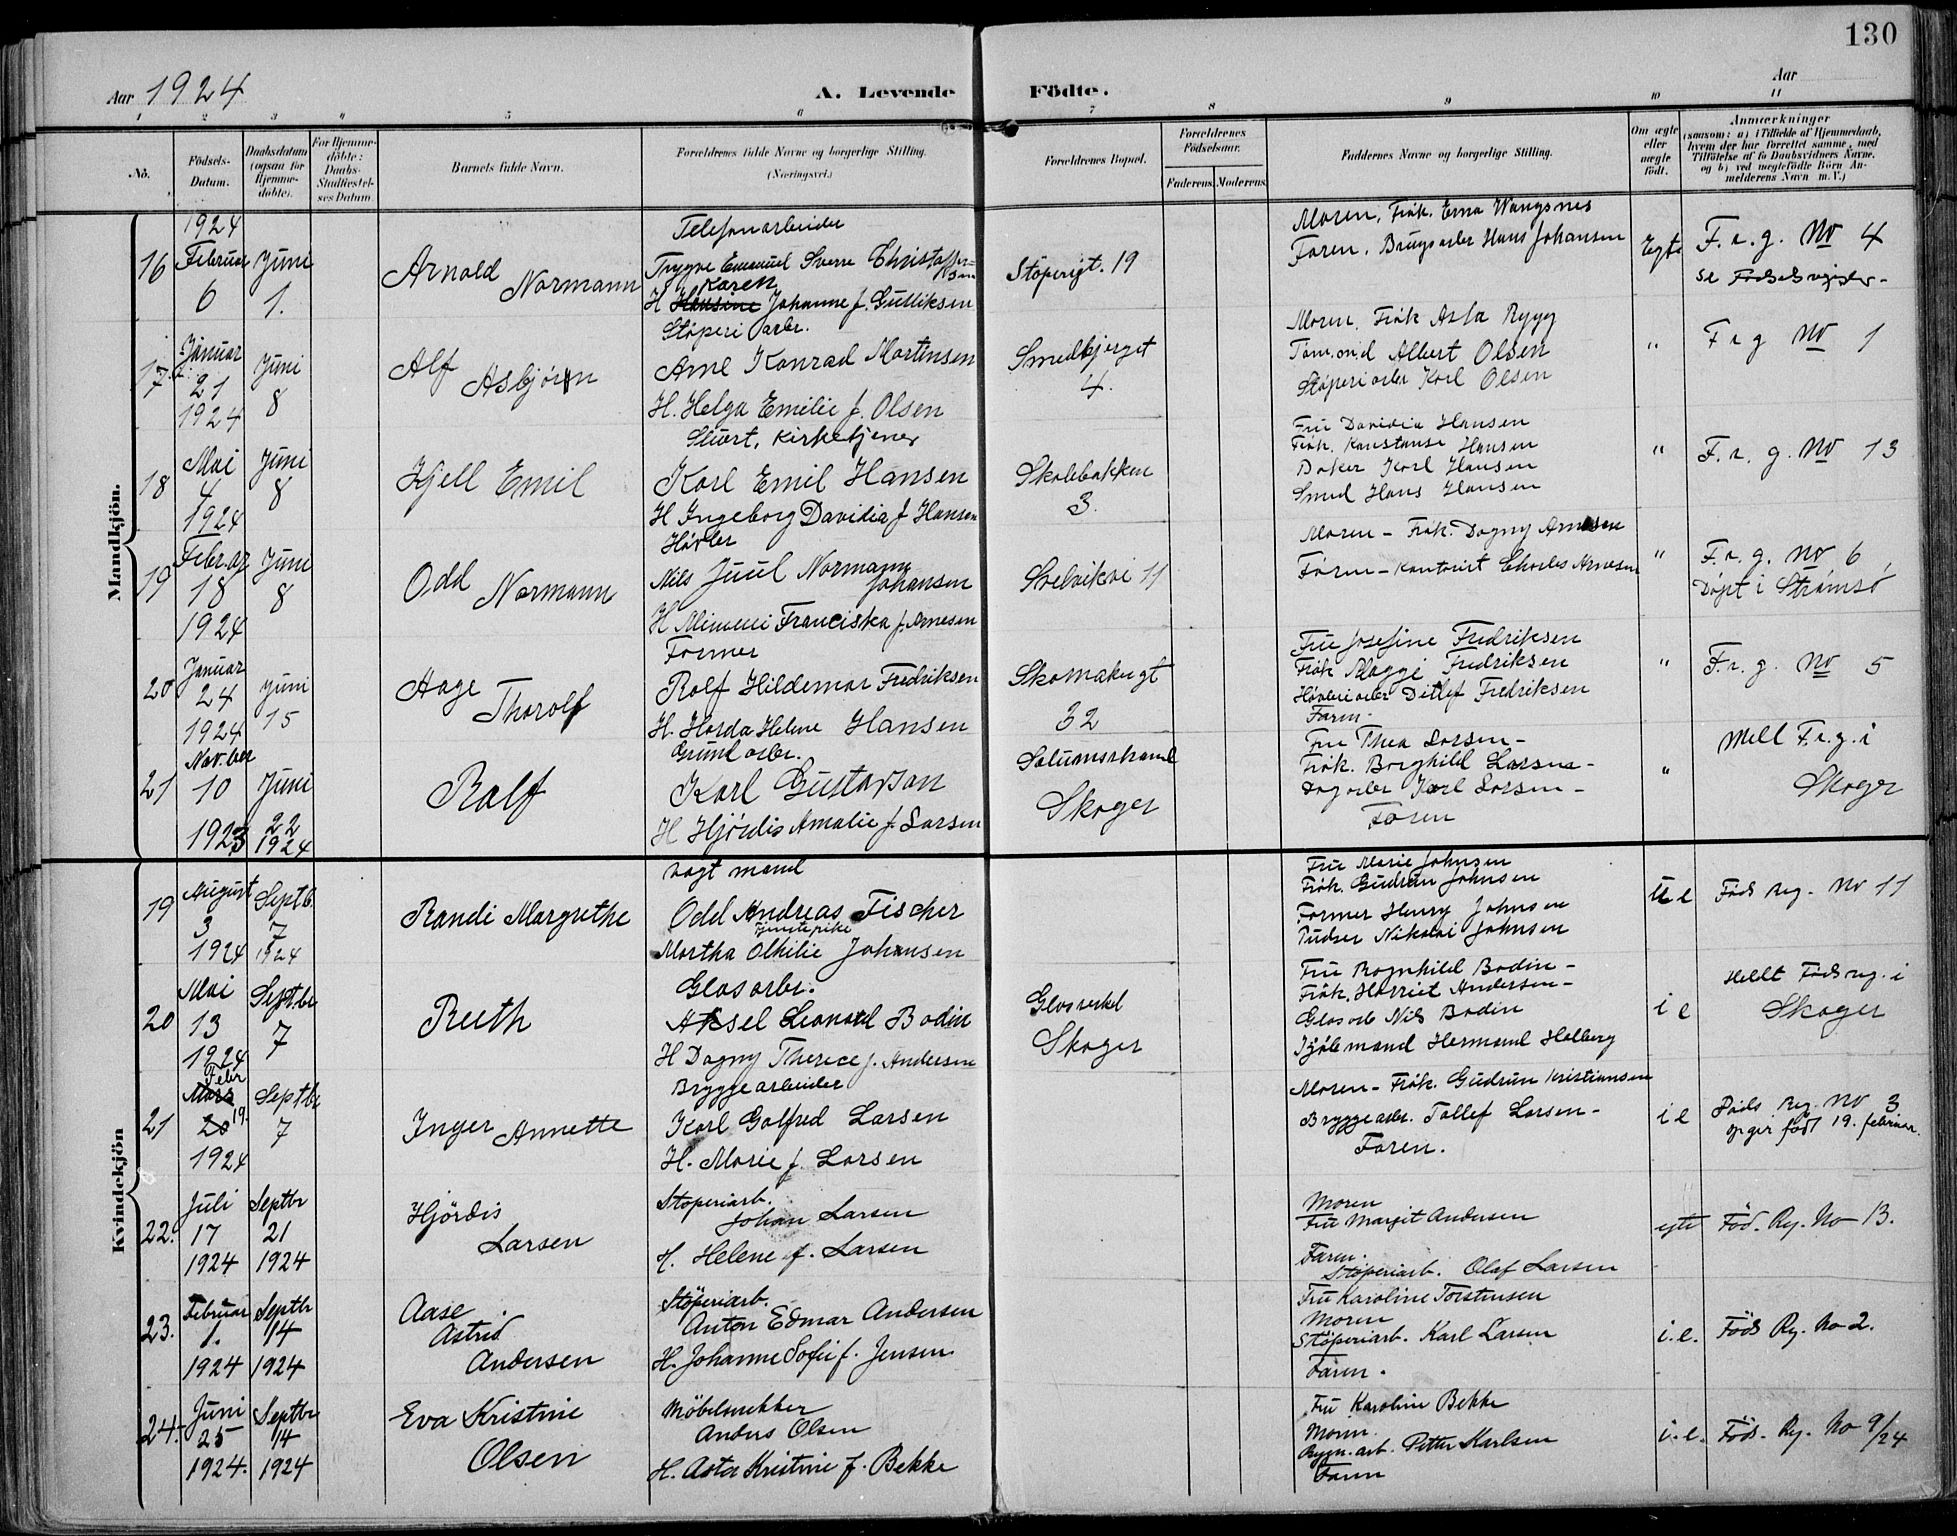 130
Aar 1924
A. Levende Födte.
Aar
1 2 3 4 5 6 7 8 9 10 11
No.
Födsels-Datum.
Daabsdatum (ogsaa for Hjemme-döbte).
For Hjemme-döbte: Daabs-Stadfæstel-ses Datum.
Barnets fulde Navn.
Forældrenes fulde Navne og borgerlige Stilling.
(Næringsvei.)
Forældrenes Bopæl.
Forældrenes Födselsaar.
Faderens. Moderens.
Faddernes Navne og borgerlige Stilling.
Om ægte eller uægte födt.
Anmærkninger
(saasom: a) i Tilfælde af Hjemmedaab, hvem der har forrettet samme, med Tilföielse af to Daabsvidners Navne, og b) ved uægtefödte Börn Anmelderens Navn m. V.)
Mandkjön.
16
1924
Februar
6
Juni
1.
Arnold
Normann
Telefonarbeider
Trygve Emanuel Sverre Christoffersen
Karen
H Hansine Johanne f. Gulliksen
Støperigt. 19
Moren, Frøk. Erna Wangsnes
Faren, Brugsarber Hans Johansen
Egte
F. r. g. No 4
se Fødselsregister-
17
Januar
21
1924
Juni
8
Alf
Asbjørn
Støperi arbr.
Arne Konrad Martinsen
H. Helga Emilie f. Olsen
Smedbjerget
4.
Moren, Frøk Asta Rygg
Tøm.md Albert Olsen
Støperiarber Karl Olsen
"
F r g No 1
18
Mai
4
1924
Juni
8
Kjell Emil
Stuert, Kirketjener
Karl Emil Hansen
H Ingeborg Davidia f Hansen
Skolebakken
3.
Fru Davidia Hansen
Frøk. Konstanse Hansen
Baker Karl Hansen
Smed Hans Hansen
"
F. r. g. No 13
19
Februar
18
1924
Juni
8
Odd
Normann
Høvler
Nils Juul Normann
Johansen
H Mimmi Franciska f. Arnesen
Svelvikvei 11
Moren - Frøk. Dagny Arnesen
Faren - Kontorist Charles Arnesen
"
F. r. g. No 6
Døpt i Strømsø
20
Januar
24
1924
Juni
15
Aage
Thorolf
Former
Rolf Hildemar Fredriksen
H. Harda Helene Hansen
Skomakergt
32
Fru Josefine Fredriksen
Frøk Maggi Fredriksen
Høvleriarber Ditlef Fredriksen
Faren.
"
F. r. g. No 5
21
Nov.ber
10
1923
Juni
22
1924
Rolf
Grundarbr.
Karl Gustavson
H Hjørdis Amalie f. Larsen
Solumstrand
Skoger
Fru Thea Larsen -
Frøk. Borghild Larsen -
Dagarber Karl Larsen -
Faren
"
Meldt F. r. g. i
Skoger
Kvindekjön
19
August
3
1924
Septb.
7
1924
Randi Margrethe
Vagtmand
Odd Andreas Fischer
Tjenstepike
Martha Othilie Johansen
Fru Marie Johnsen
Frøk. Gudrun Johnsen
Former Henry Johnsen
Pudser Nikolai Johnsen
U e
Føds reg. No 11
20
Mai
13
1924
Septbr
7
Ruth
Glasarbr.
Aksel Leonard Bodin
H Dagny Therece f. Andersen
Glasverket
Skoger
Fru Ragnhild Bodin -
Frøk. Harriet Andersen -
Glasarb Nils Bodin
Kjølemand Hermand Holberg
i e
Meldt Føds reg. i
Skoger
21
Febr
Mars
20 19.
1924
Septbr
7
Inger Annette
Bryggearbeider
Karl Golfred Larsen
H. Marie f. Larsen
Moren - Frøk. Gudrun Kristiansen
Bryggearbr. Tollef Larsen -
Faren.
i e
Føds Reg. No 3
opgir født 19. februar.
22.
Juli
17
1924
Septbr
21
1924
Hjördis
Larsen
Støperiarb.
Johan Larsen
H. Helene f. Larsen
Moren
Fru Margit Andersen
Faren.
Støperiarb. Olaf Larsen
egte
Föd. Rg. No 13.
23.
Februar
1.
1924
Septbr
14
1924
Aase
Astrid
Andersen
Støperiarb.
Anton Edmar Andersen
H. Johanne Sofie f. Jensen
Fru Karoline Torstensen
Moren
Støperiarb. Karl Larsen
Faren.
i. e.
Föds Rg. No 2.
24.
Juni
25
1924.
Septbr
14
1924
Eva Kristine
Olsen
Möbelsnekker
Anders Olsen
H. Asta Kristine f. Bekke
Fru Karoline Bekke
Moren.
Petter Karlsen
Faren
i. e.
Föds. Rg. No 9/24